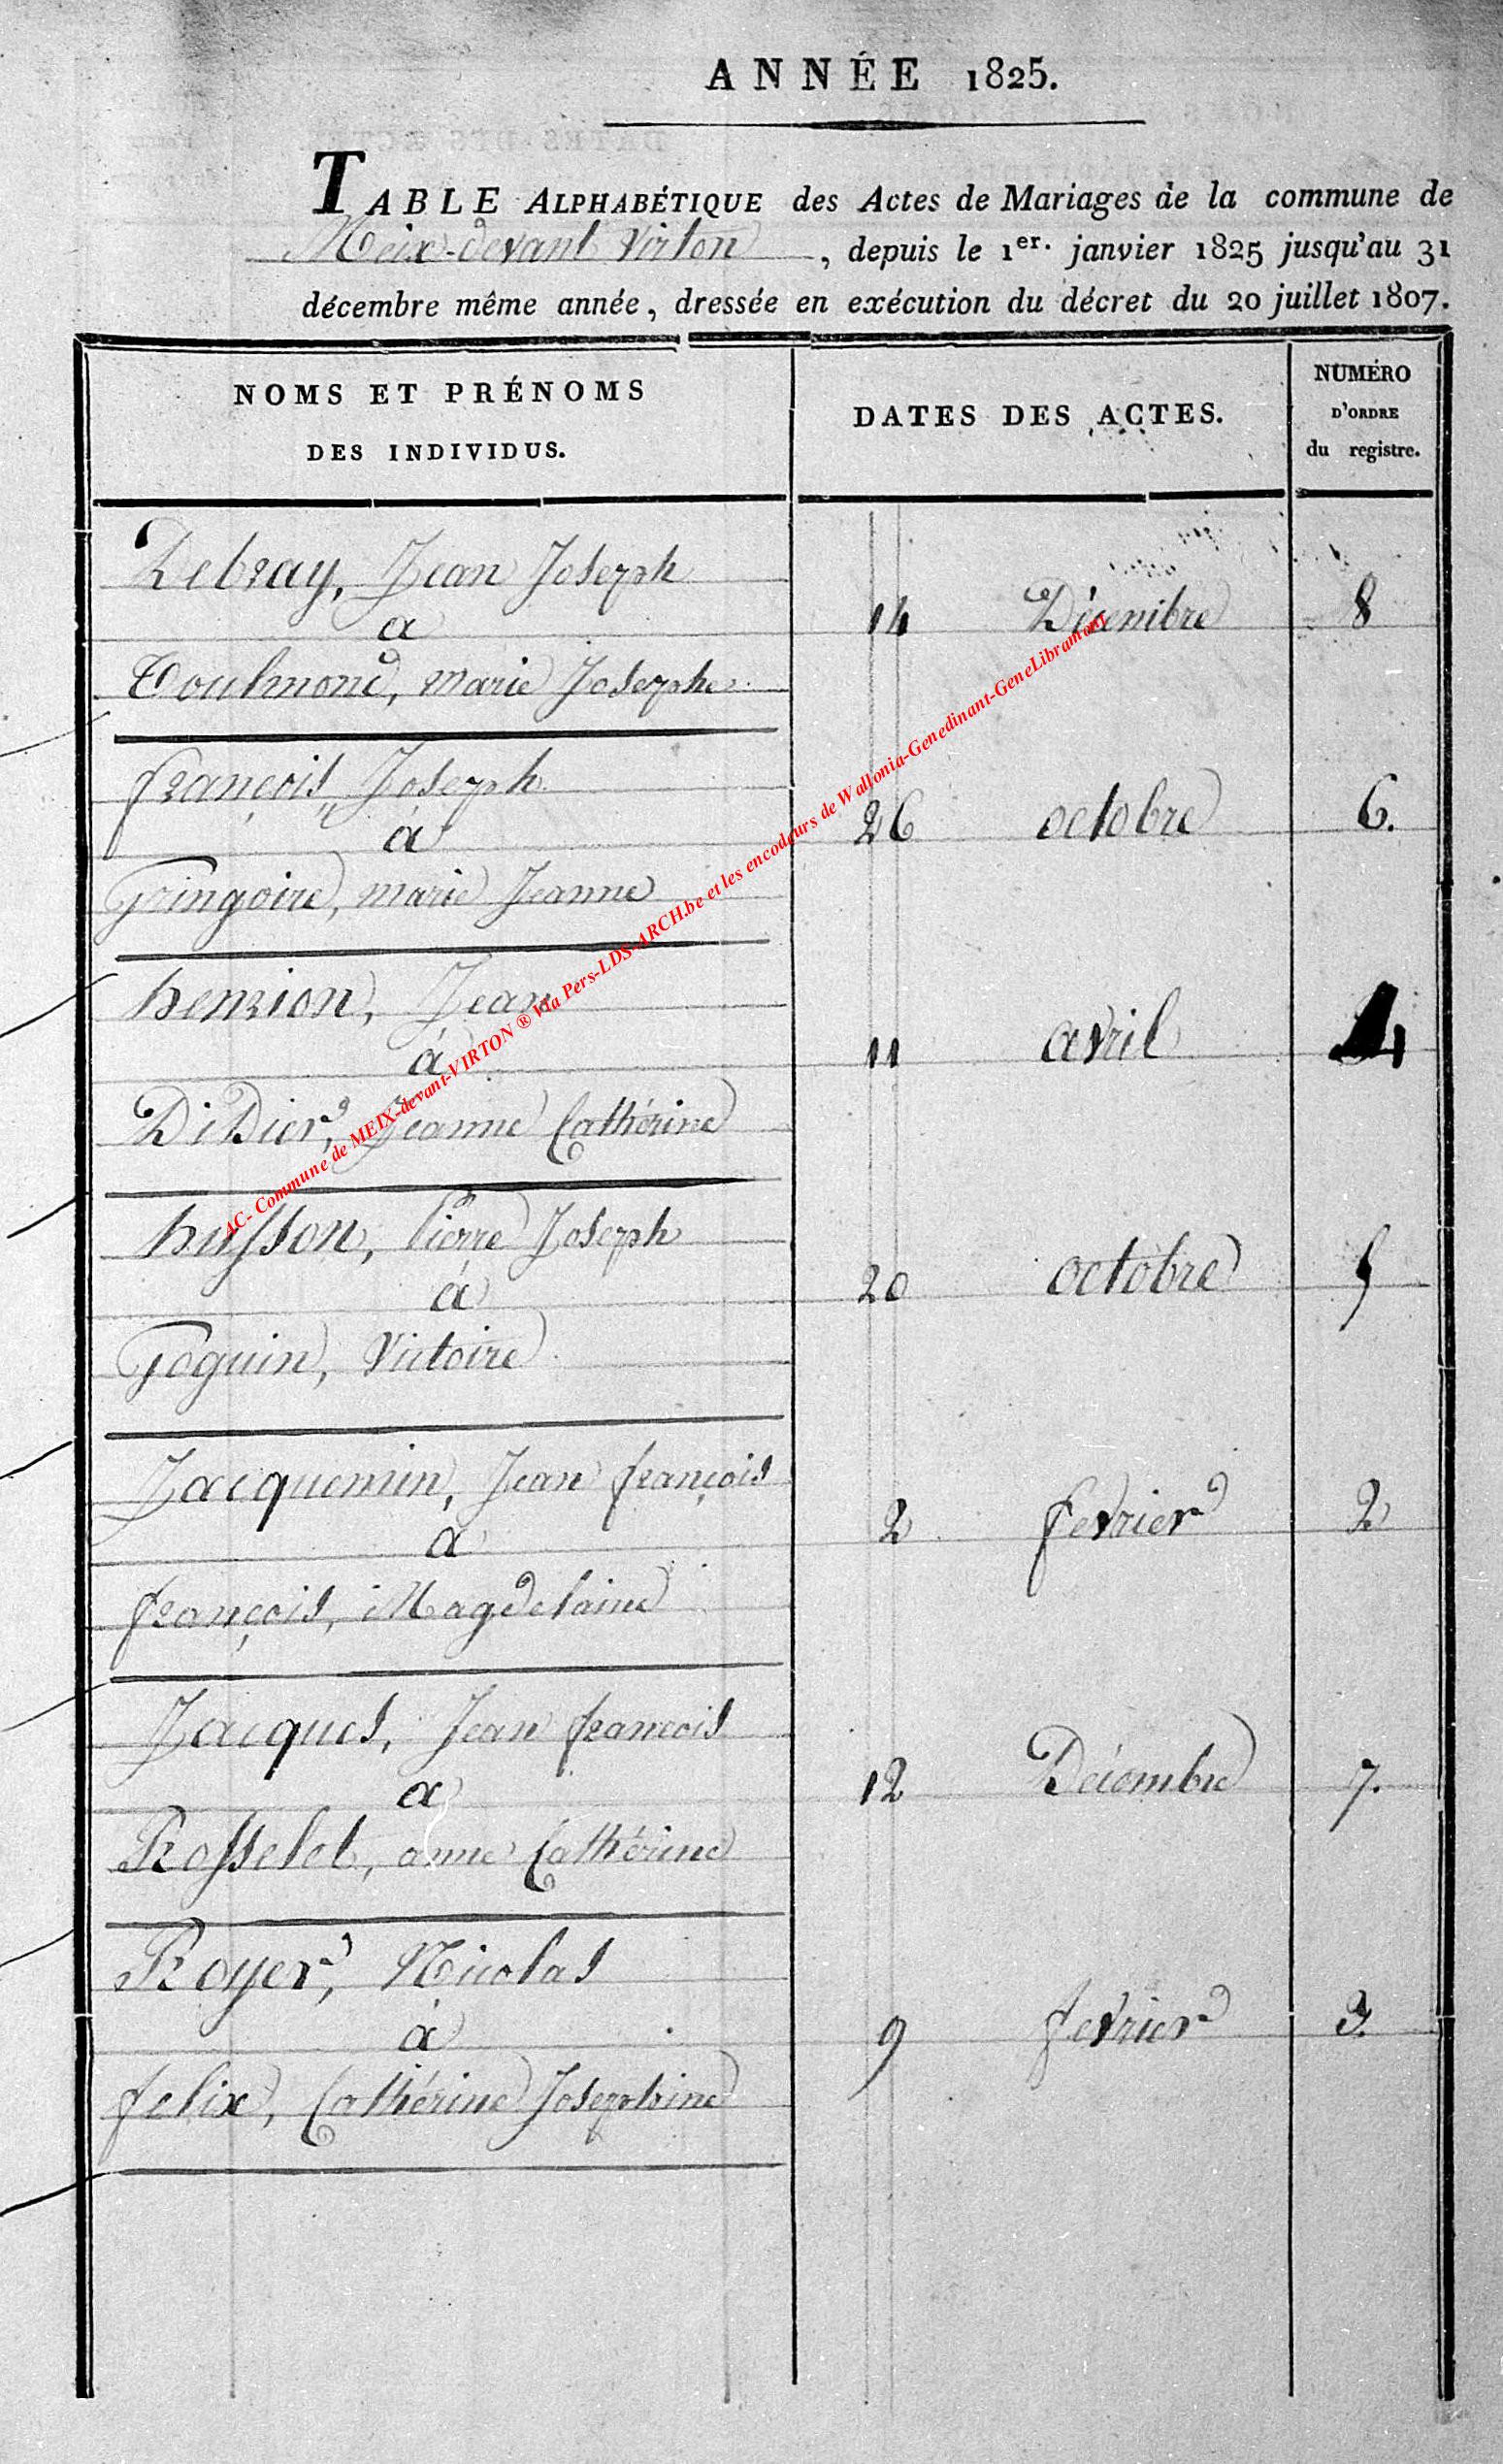 ANNÉE 1825.
TABLE ALPHABÉTIQUE des Actes de Mariages de la commune de
Meix-devant Virton, depuis le 1er. janvier 1825 jusqu'au 31
décembre même année, dressée en exécution du décret du 20 juillet 1807.
NOMS ET PRÉNOMS
DES INDIVIDUS.
DATES DES ACTES.
NUMÉRO
D'ORDRE
du registre.
Debray, Jean Joseph
a
14 Décembre 8
Toulmond, marie Josephe
françois, Joseph
à
26 octobre 6.
Gringoire, marie Jeanne
henrion, Jean
à
11 avril 4
Didier, Jeanne Cathérine
husson, Pierre Joseph
à
20 octobre 5
Goguin, Victoire
Jacquemin, Jean françois
a
2 fevrier 2
françois, Magdelaine
Jacques, Jean francois
a
12 Décembre 7.
Rosselet, anne Cathérine
Royer, Nicolas
à
9 fevrier 3.
felix, Cathérine Josephine
AC- Commune de MEIX-devant-VIRTON ® Via Pers-LDS-ARCH.be et les encodeurs de Wallonia-Genedinant-GeneLibramont